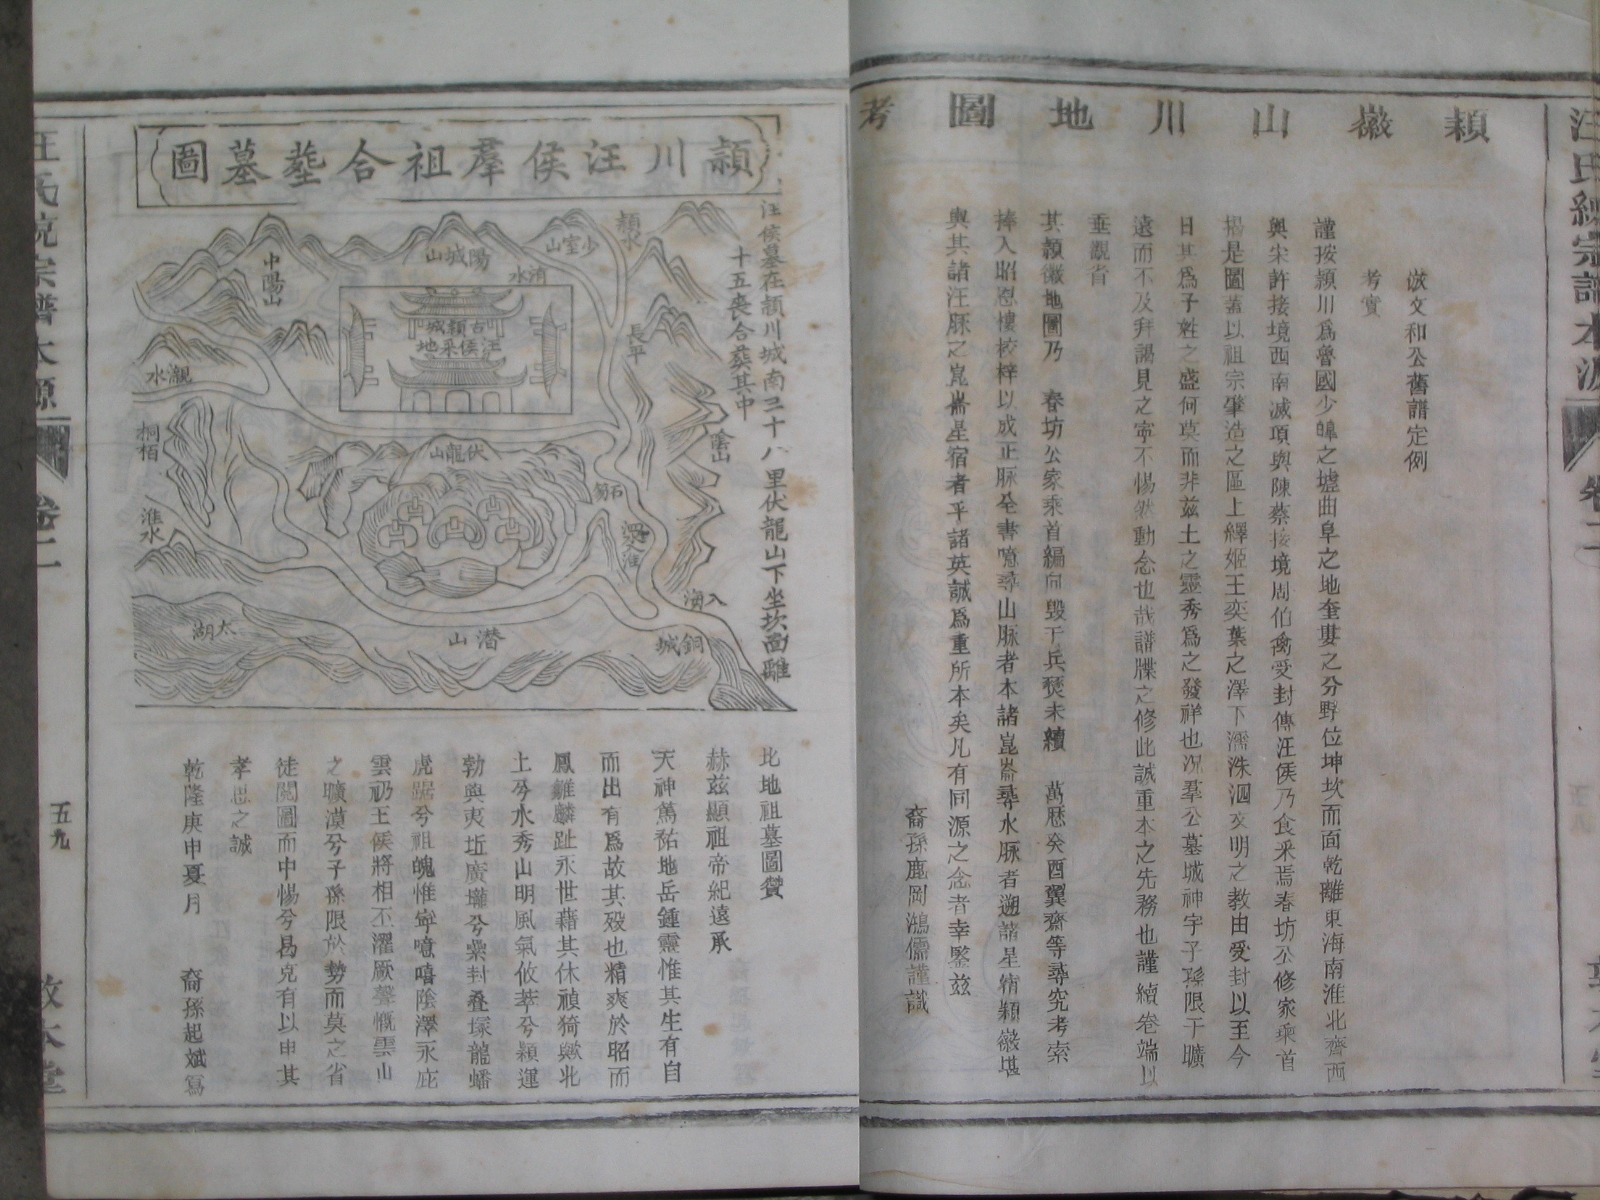 潁徽山川地圖考
倣文和公舊譜定例
考實
謹按潁川爲魯國少皥之墟曲阜之地奎婁之分野位坤坎而面乾離東海南淮北齊西
與宋許接境西南滅項與陳蔡接境周伯禽受封傳汪侯乃食采焉春坊公修家乘首
揭是圖蓋以祖宗肇造之區上繹姬王奕葉之澤下濡洙泗文明之教由受封以至今
日其爲子姓之盛何莫而非茲土之靈秀爲之發祥也况羣公墓城神宇子孫限于曠
遠而不及拜謁見之寧不惕然動念也哉譜牒之修此誠重本之先務也謹續卷端以
垂觀省
其潁徽地圖乃 春坊公家乘首編向毀于兵燹未續 萬曆癸酉翼齋等尋究考索
捧入昭恩樓校梓以成正脉全書噫尋山脉者本諸崑崙尋水脉者遡諸星宿潁徽堪
輿其諸汪脉之崑崙星宿者乎諸英誠爲重所本矣凡有同源之念者幸鑒茲
裔孫鹿岡鴻儒謹識
潁川汪侯羣祖合塟墓圖
汪侯墓在潁川城南三十八里伏龍山下坐坎面離
十五喪合葬其中
潁水
少室山
洧水
陽城山
中陽山
古潁城
汪侯采地
長平
瀙水
桐栢
陰山
伏龍山
淮水
入海
銅城
潜山
太湖
北地祖墓圖贊
赫茲顯祖帝紀遠承
天神篤祐地岳鍾靈惟其生有自
而出有爲故其歿也精爽於昭而
鳳雛麟趾永世藉其休禎猗歟北
上兮水秀山明風氣攸萃兮潁運
勃興夷坵廣壠兮紫封叠塚龍蟠
虎踞兮祖魄惟寧噫嘻陰澤永庇
雲礽王侯將相丕濯厥聲慨雲山
之曠漠兮子孫限於勢而莫之省
徒閱圖而中惕兮曷克有以申其
孝思之誠
乾隆庚申夏月 裔孫起斌寫
汪氏統宗譜本源
卷二
五九
敦本堂